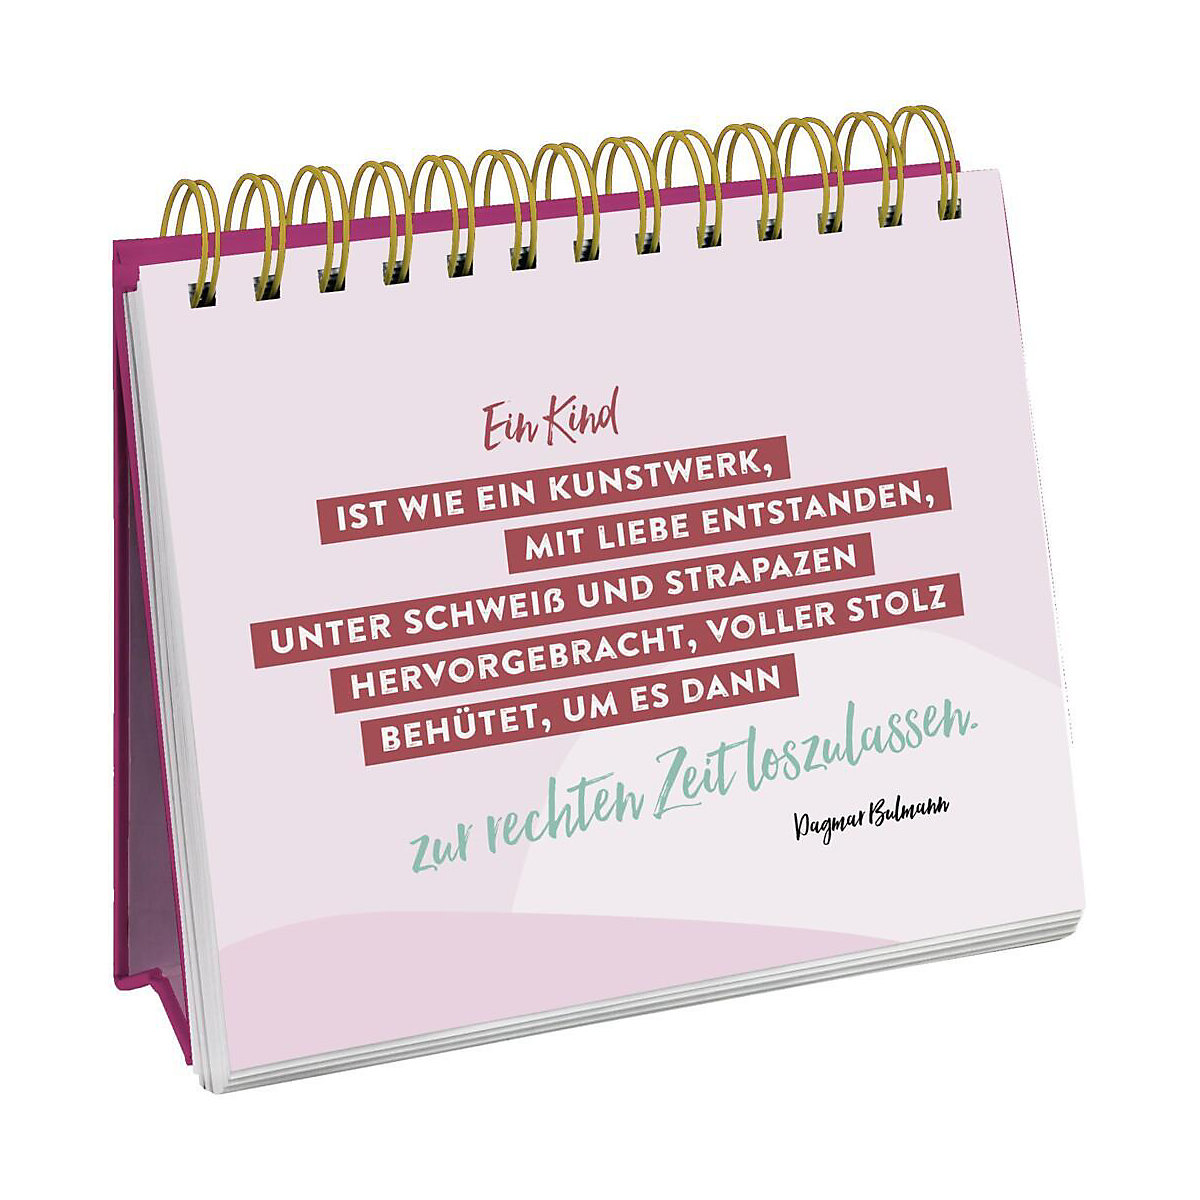 Ein Kind
IST WIE EIN KUNSTWERK,
MIT LIEBE ENTSTANDEN,
UNTER SCHWEIß UND STRAPAZEN
HERVORGEBRACHT, VOLLER STOLZ
BEHÜTET, UM ES DANN
zur rechten Zeit loszulassen.
Dagmar Bulmann